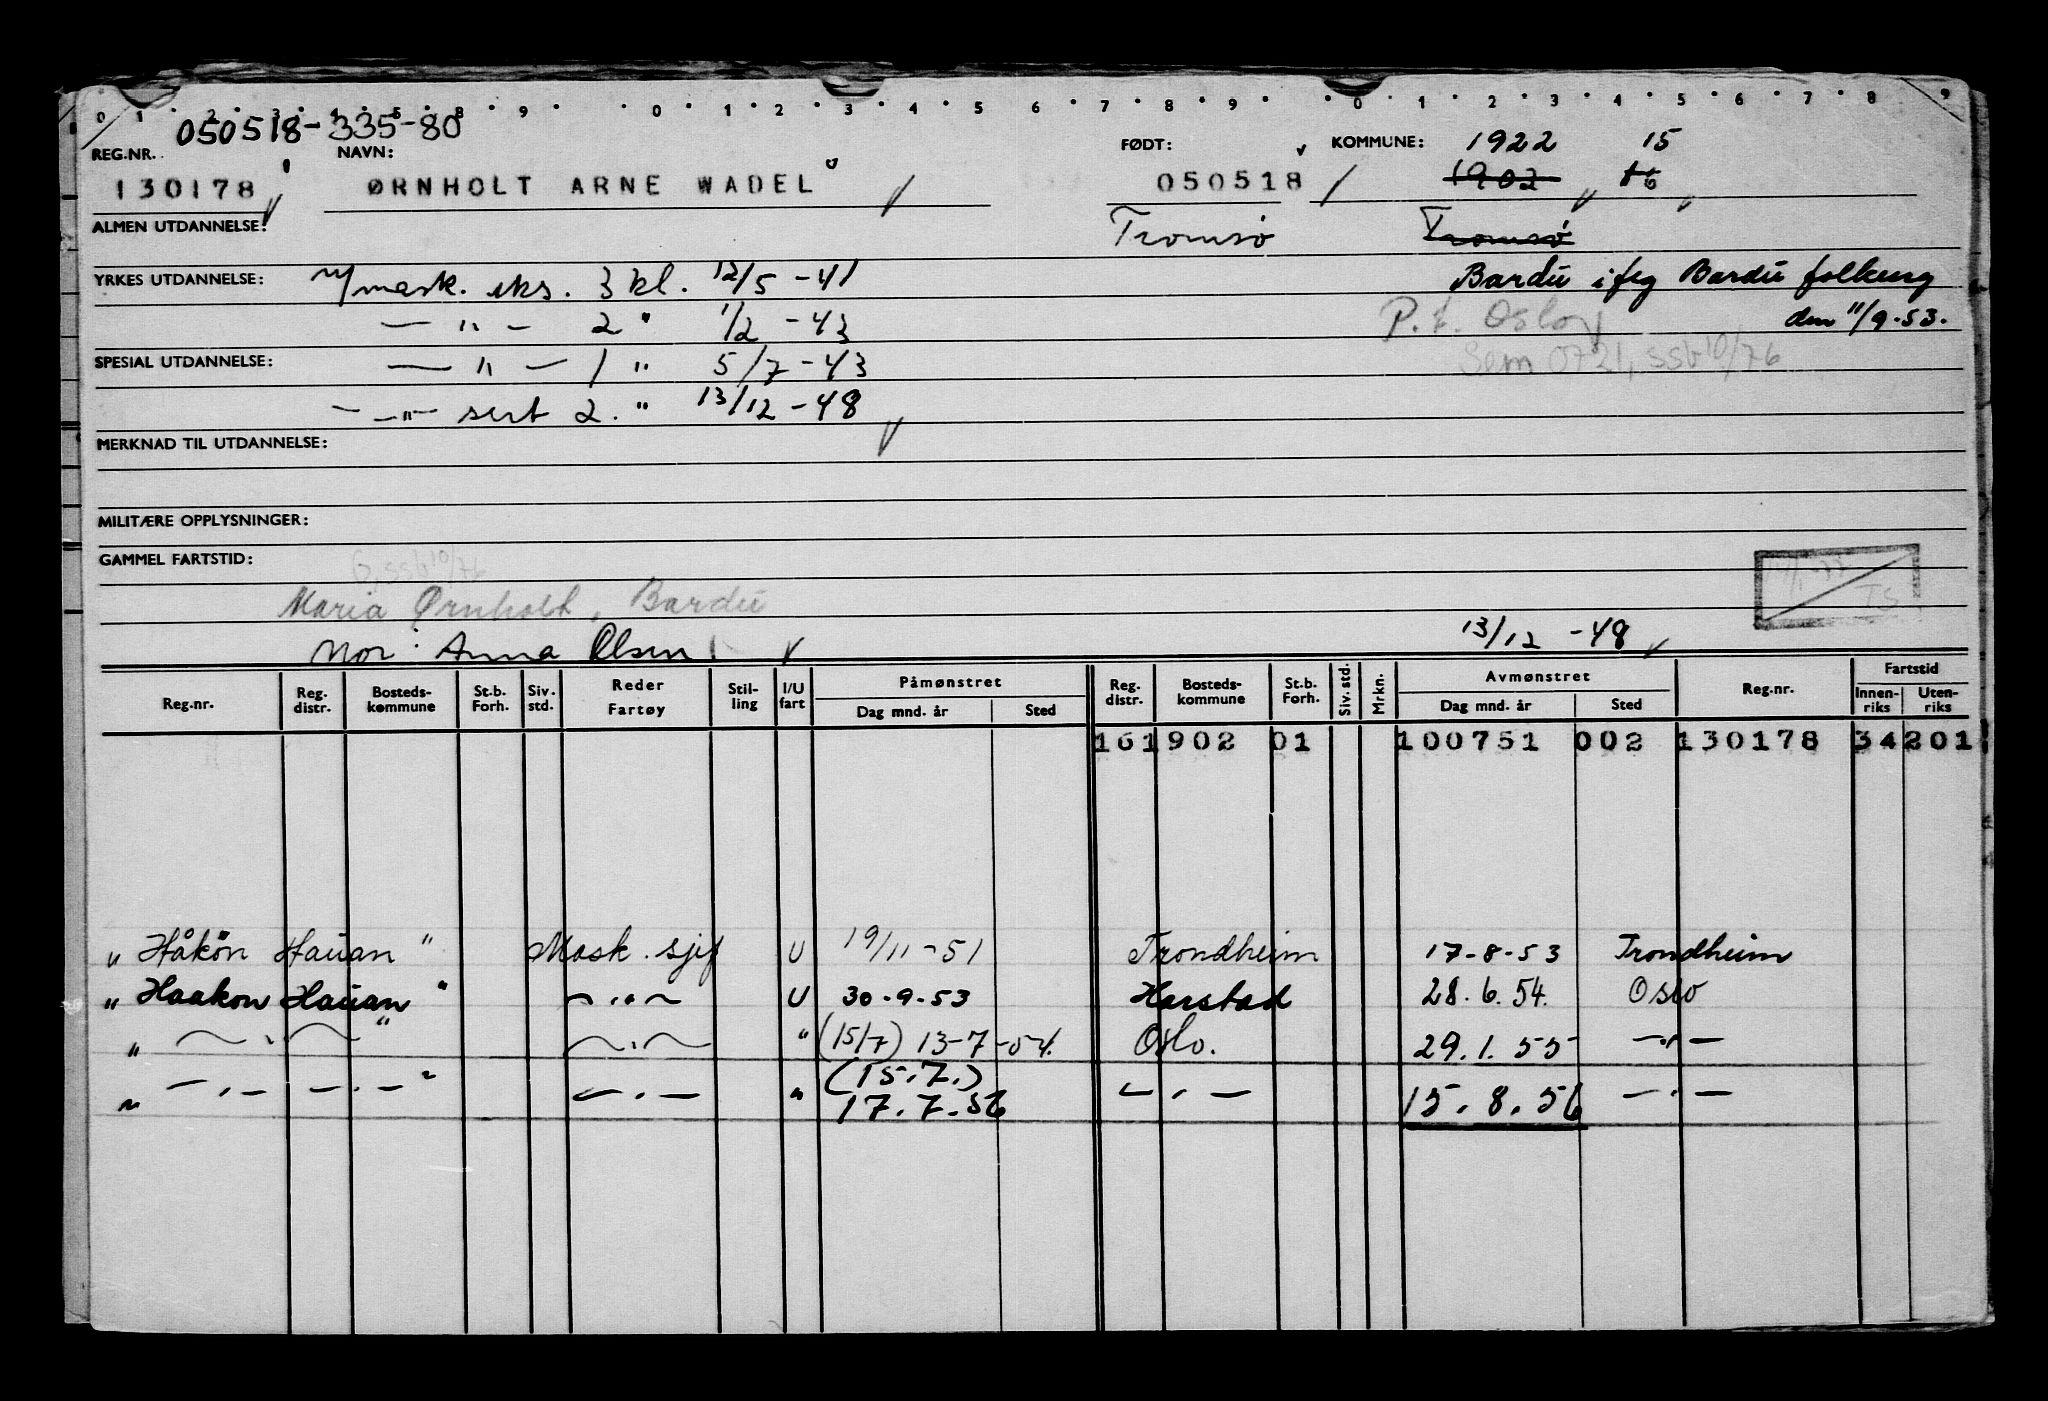 0 1 2 3 4 5 8 9 0 1 2 3 4 5 6 7 8 9 0 1 2 3 4 5 6 7 8 9
050518-335-80
REG.NR. NAVN: FØDT: KOMMUNE: 1922 15
130178 ØRNHOLT ARNE WADEL 050518 1902 16
ALMEN UTDANNELSE: Tromsø Tromsø
YRKES UTDANNELSE: mask. eks. 3 kl. 12/5 -41 Bardu i flg Bardu folkereg
— " — 2 " 1/2 -43 P.t. Oslo den 11/9.53.
SPESIAL UTDANNELSE: — " — 1 " 5/7 -43 Sem 0721, ssb 10/76
— " — sert 2. " 13/12 -48
MERKNAD TIL UTDANNELSE:
MILITÆRE OPPLYSNINGER:
GAMMEL FARTSTID:
G, ssb 10/76
Maria Ørnholt, Bardu TS
Mor: Anna Olsen. 13/12 -48
Reg.nr. Reg. distr. Bosteds-kommune St.b. Forh. Siv. std. Reder Fartøy Stil-ling I/U fart Påmønstret Dag mnd. år Sted Reg. distr. Bosteds-kommune St.b. Forh. Siv. std. Mrkn. Avmønstret Dag mnd. år Sted Reg.nr. Fartstid Innen-riks Uten-riks
161902 01 100751 002 130178 34201
" Håkon Hauan " Mask. sjef U 19/11-51 Trondheim 17-8-53 Trondheim
" Haakon Hauan " — " — U 30-9-53 Harstad 28.6.54. Oslo
" — " — " — " — " (15/7) 13-7-54. Oslo. 29.1.55 — " —
(15.7.)
" — " — — " — " — " — " 17.7.56 — " — 15.8.56 — " —